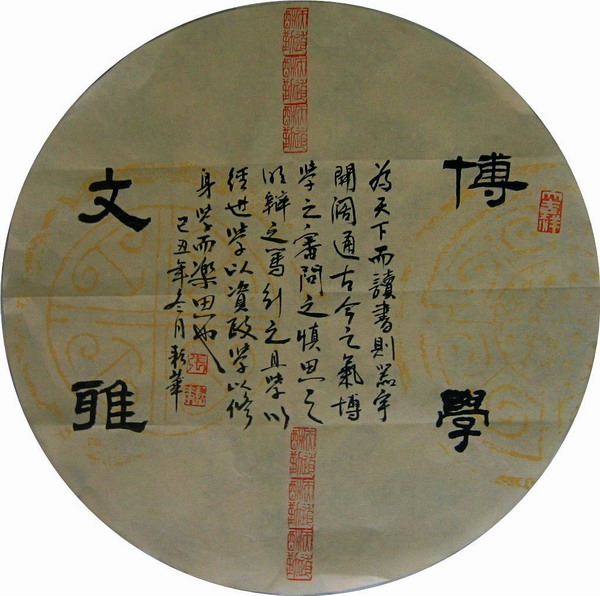 博學
為天下而讀書則器宇
開闊通古今之氣博
學之審問之慎思之
明辯之篤行之且學以
經世學以資政學以修
身學而樂思也
己丑年冬月華
文雅